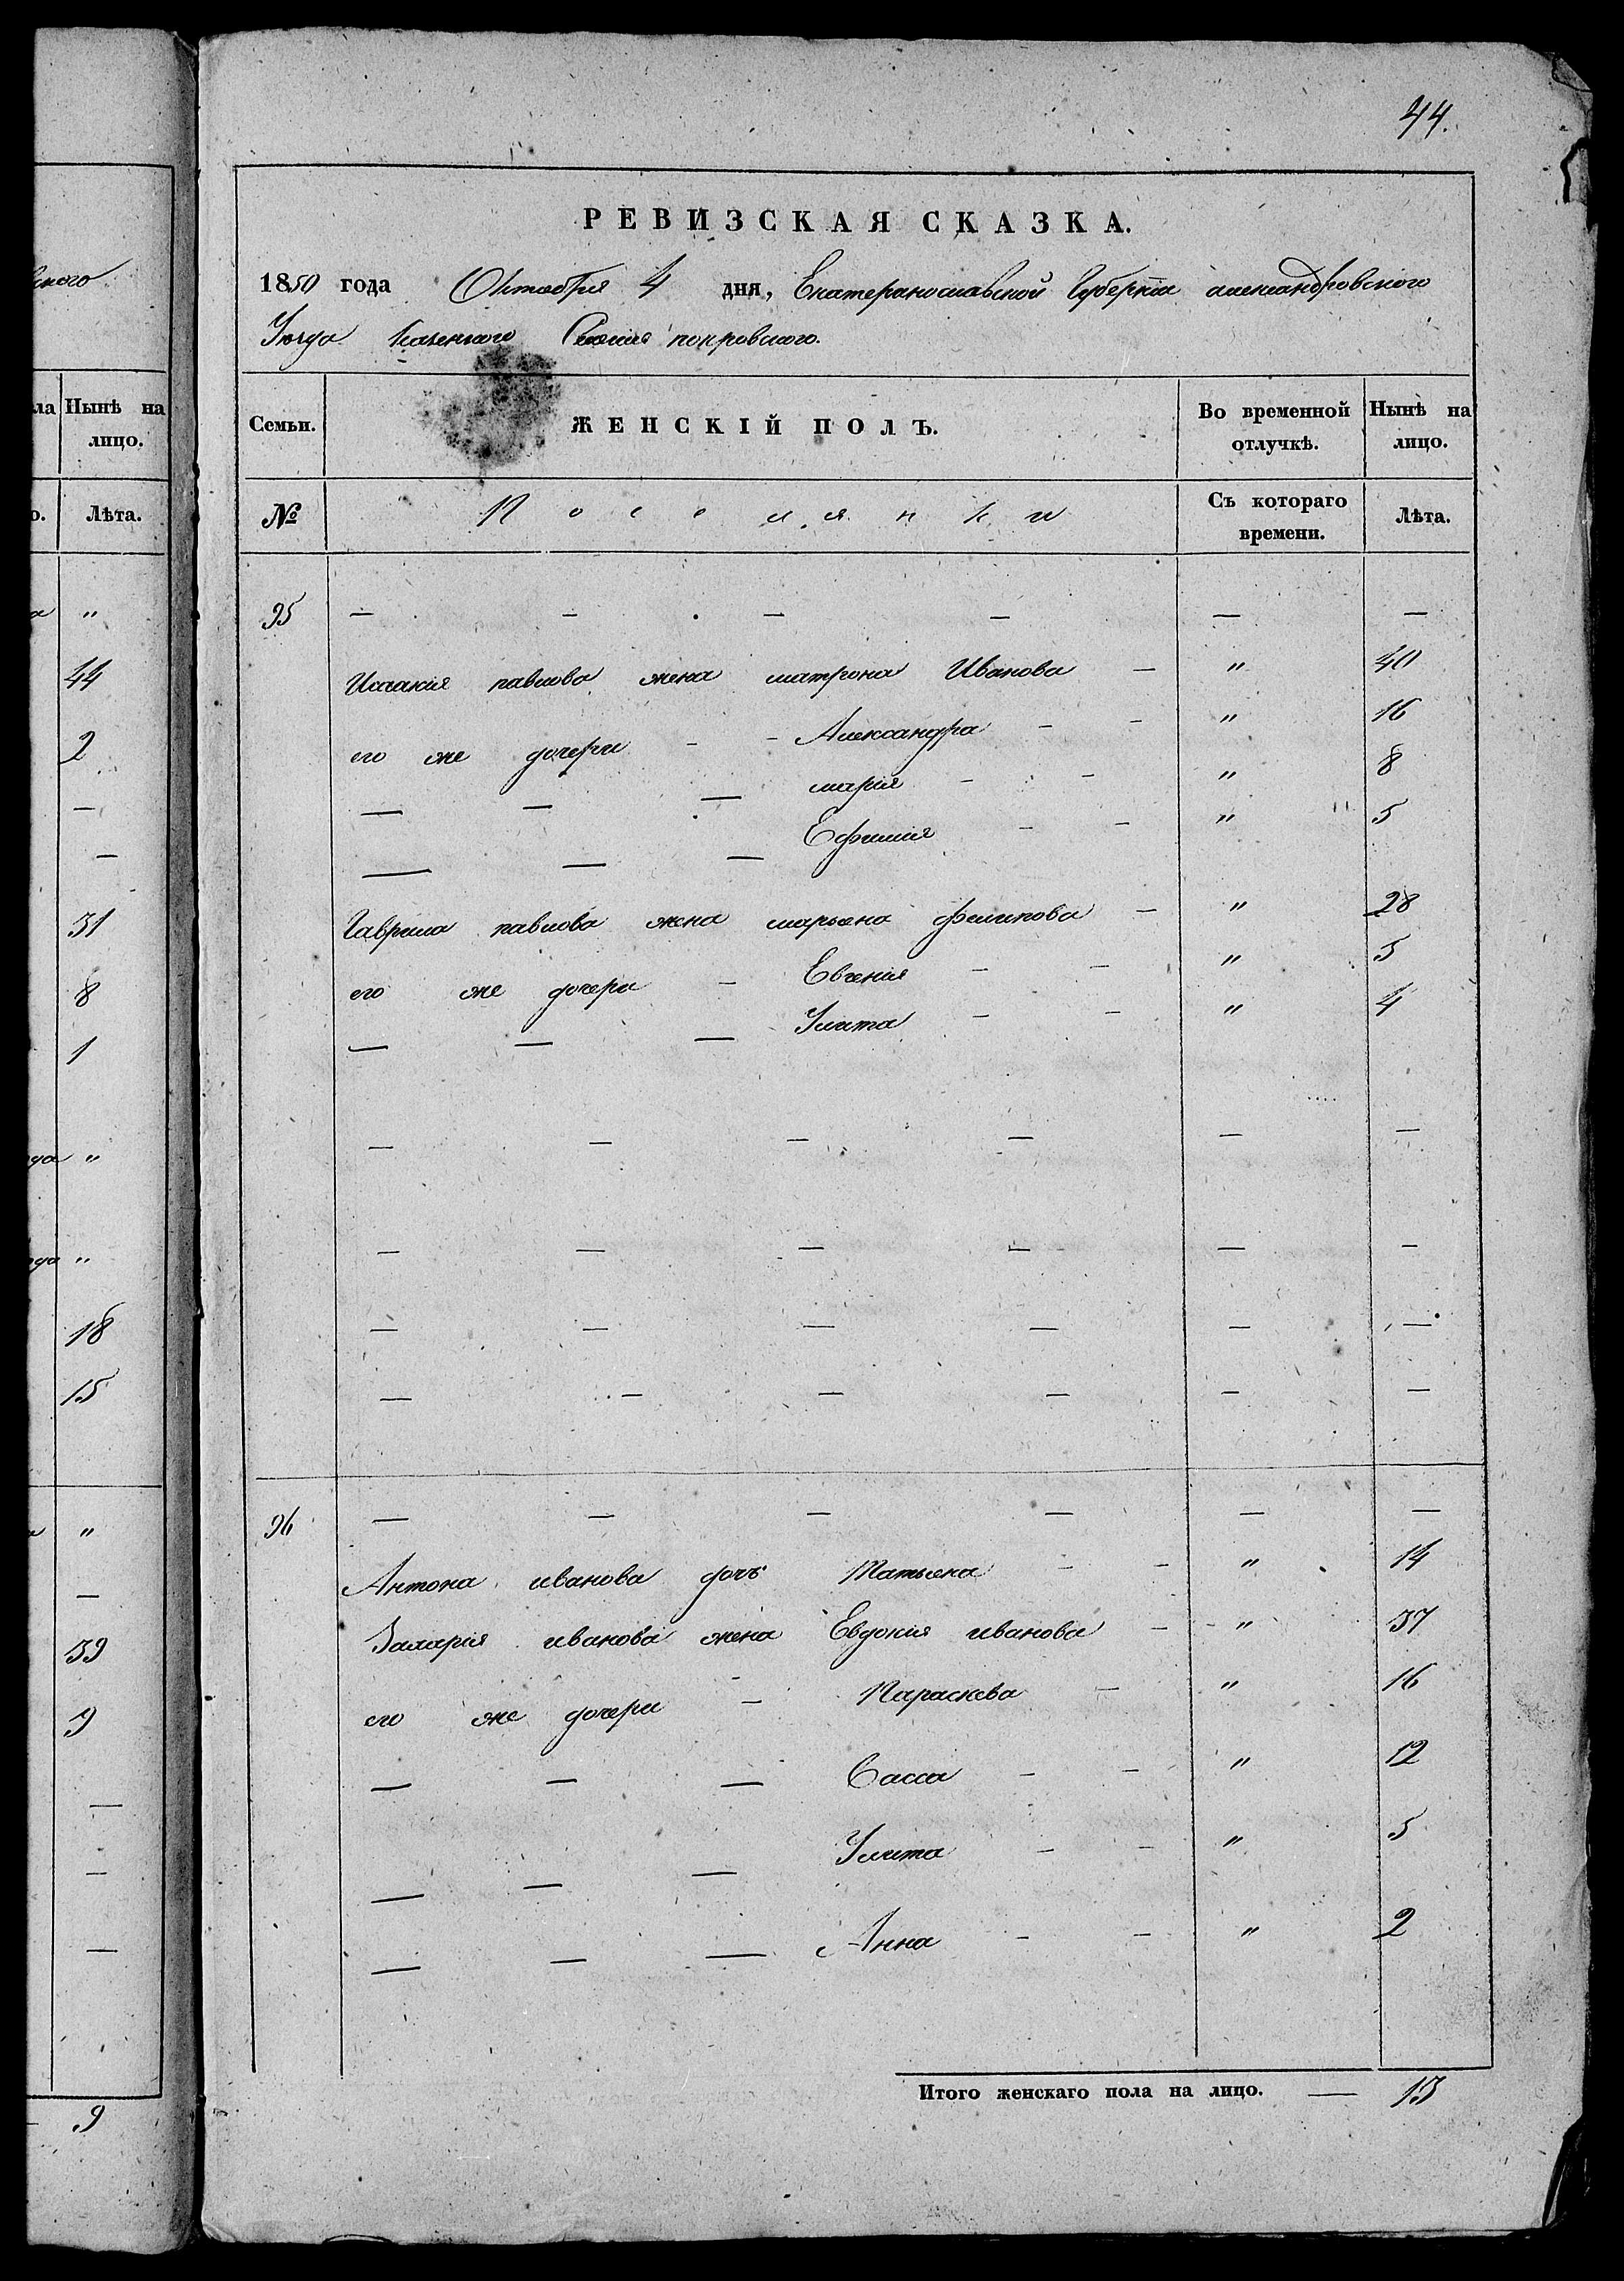 ского
ла Нынѣ на
лицо.
о. Лѣта.
а "
44
2
—
—
31
8
1
да "
да "
18
15
"
—
39
9
—
—
—
9
44.
РЕВИЗСКАЯ СКАЗКА.
1850 года Октября 4 дня, Екатеринославской Губерніи александровского
Уезда Казенного Селения покровского.
Семьи. ЖЕНСКІЙ ПОЛЪ. Во временной отлучкѣ. Нынѣ на лицо.
№ Поселянки Съ котораго времени. Лѣта.
95 — — — — — —
Исаакия павлова жена матрона Иванова — " 40
его же дочери - - Александра - - " 16
— — — мария - - " 8
— — — Ефимия - - " 5
Гаврила павлова жена марьяна филипова — " 28
его же дочери — Евгения - - " 5
— — — Улита - - " 4
— — — — — —
— — — — — —
— — — — — —
— — — — — —
96 — — — — — —
Антона иванова дочь Татьяна - - " 14
иванова жена Евдокия иванова - " 37
его же дочери — Параскева — " 16
— — — Васса - - " 12
— — — Улита - - " 5
— — — Анна - - " 2
Итого женскаго пола на лицо. — 13